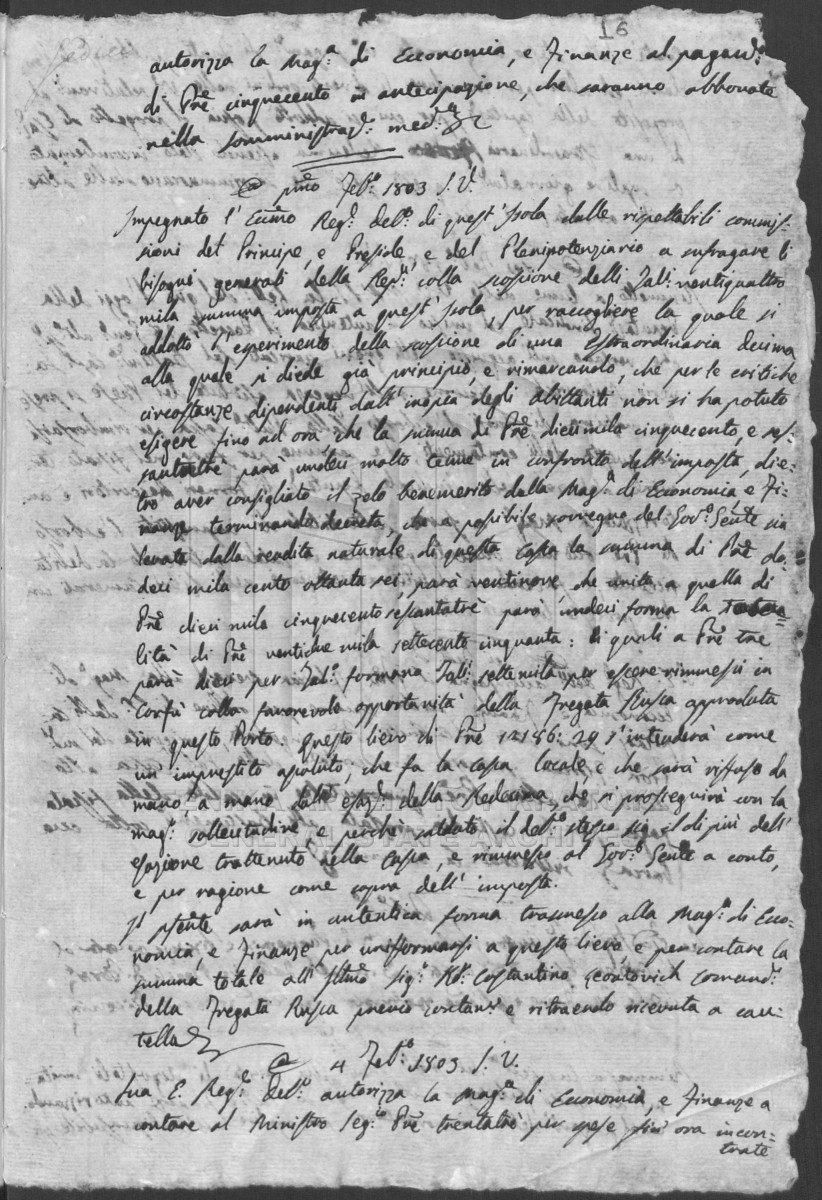 16
autorizza la Mag.ª di Economia, e Finanze al pagam.º
di Pre cinquecento in antecipazione, che saranno abbonate
nella somministraz.e med.ma
@ pmo Feb.º 1803 S. V.
Impegnato l' Ecc.mo Reg.e Del.º di quest' Isola dalle rispettabili commis-
sioni del Principe, e Preside, e del Plenipotenziario a sufragare li
bisogni generali della Rep.ca colla scossione delli Tal.i ventiquattro
mila summa imposta a quest' Isola, per raccogliere la quale si
addottò l'esperimento della scossione di una Estraordinaria Decima
alla quale si diede già principio, e rimarcando, che per le critiche
circostanze dipendenti dall' inopia degli abittanti non si ha potuto
essigere fino ad ora, che la summa di Pre diecimila cinquecento, e ses-
santatre parà undeci molto tenue in confronto dell' imposta, die-
tro aver consigliato il zelo benemerito della Mag.ª di Economia, e Fi-
nanze terminando decreta, che a possibile sovvegno del Gov.º Gen.te sia
levata dalla rendita naturale di questa Cassa la summa di Pre do-
deci mila cento ottanta sei, parà ventinove, che unita a quella di
Pre dieci mila cinquecento sessantatre parà undeci forma la
lità di Pre ventidue mila settecento cinquanta: li quali a Pre tre
parà dieci per Tal.º formano Tal.i settemila per essere rimmessi in
Corfù colla favorevole opportunità della Fregata Russa approdata
in questo Porto. Questo lievo di Pre 12186: 29 s'intenderà come
un' imprestito assoluto, che fa la Cassa locale, e che sarà riffuso da
mano, a mano dall' esaz.e della Redecima, che si proseguirà con la
mag.r sollecitudine, e perchè saldato il deb.º stesso sia il di più dell'
esazione trattenuto nella Cassa, e rimmesso al Gov.º Gen.te a conto,
e per ragione come sopra dell' imposta.
Il pñte sarà in autentica forma trasmesso alla Mag.ª di Eco-
nomia, e Finanze per unifformarsi a questo lievo, e per contare la
summa totale all' Ill.mo Sig.r K.r Costantino Leontovich Comand.e
della Fregata Russa previo e ritraendo ricevuta a cau-
tella
@ 4 Feb.º 1803. S. V.
Sua E. Reg.e Del.º autorizza la Mag.ª di Economia, e Finanze a
contare al Ministro Seg.º Pre trentatre per spese fin' ora incon-
trate